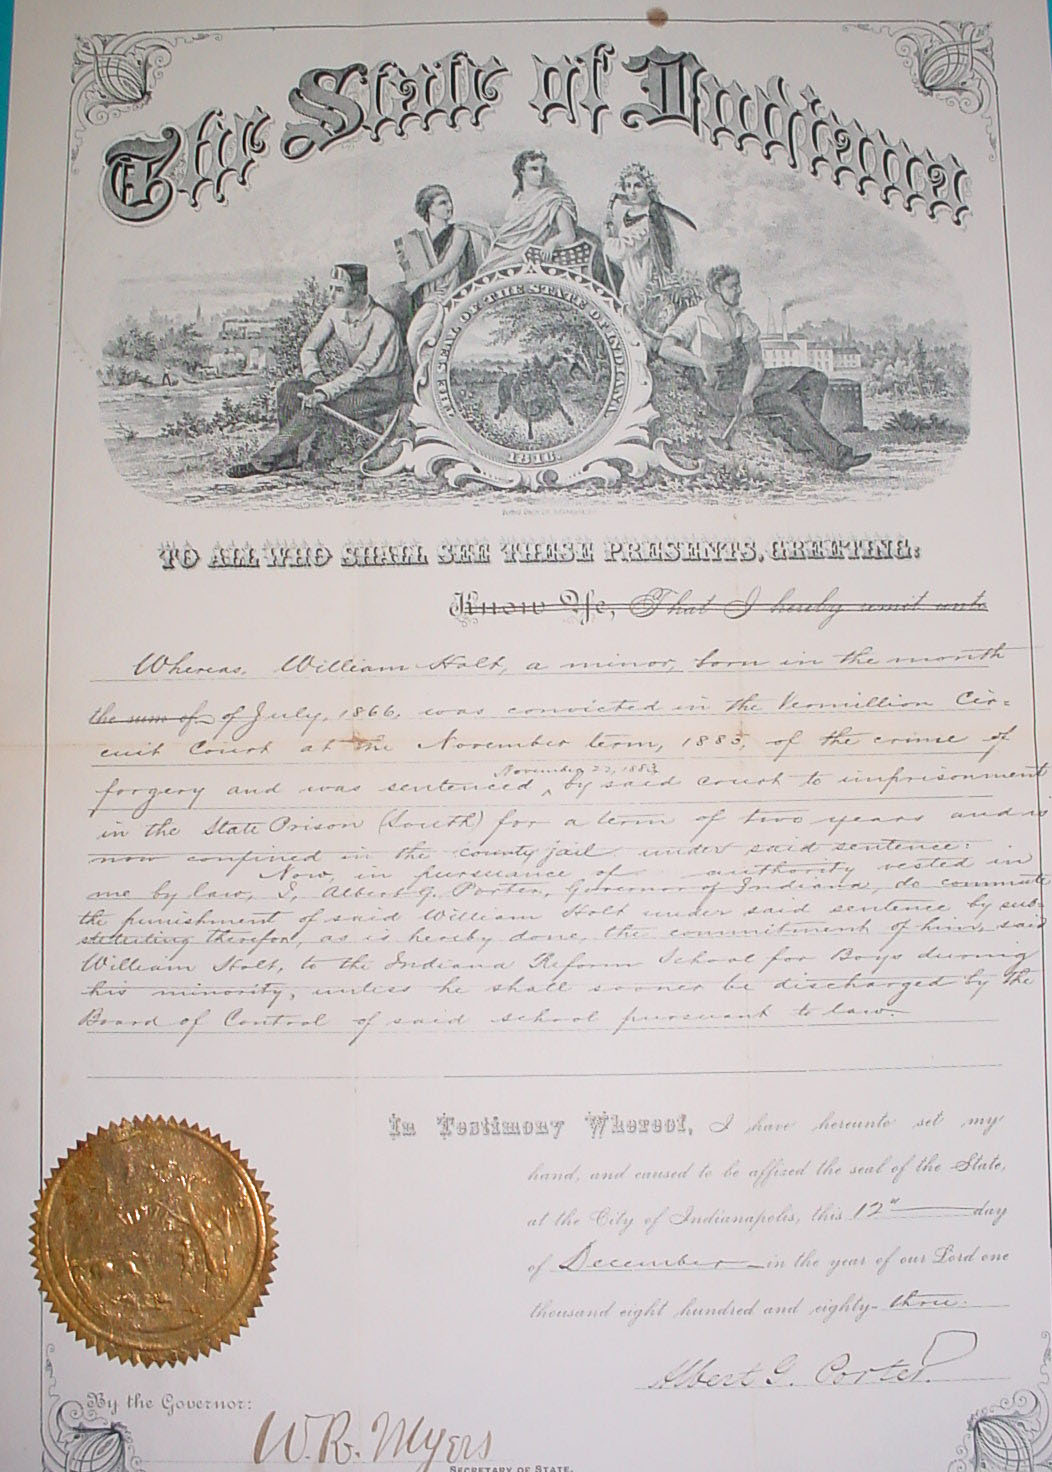 The State of Indiana
THE SEAL OF THE STATE OF INDIANA
1816.
TO ALL WHO SHALL SEE THESE PRESENTS, GREETING:
Know Ye, That I hereby remit unto
Whereas, William Holt, a minor, born in the month
the sum of of July, 1866, was convicted in the Vermillion Cir=
cuit Court at the November term, 1883, of the crime of
November 22, 1883
forgery and was sentenced ^ by said court to imprisonment
in the State Prison (South) for a term of two years and is
now confined in the county jail under said sentence:
Now, in pursuance of authority vested in
me by law, I, Albert G. Porter, Governor of Indiana, do commute
the punishment of said William Holt under said sentence by sub=
stituting therefor, as is hereby done, the commitment of him, said
William Holt, to the Indiana Reform School for Boys during
his minority, unless he shall sooner be discharged by the
Board of Control of said school pursuant to law.
In Testimony Whereof, I have hereunto set my
hand, and caused to be affixed the seal of the State,
at the City of Indianapolis, this 12th day
of December in the year of our Lord one
thousand eight hundred and eighty-three.
Albert G. Porter.
By the Governor:
W. R. Myers
SECRETARY OF STATE.